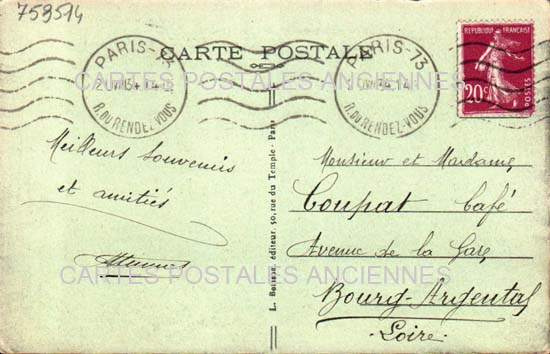 759514
CARTE POSTALE
PARIS-13
R. DU RENDEZ-VOUS
PARIS-13
R. DU RENDEZ-VOUS
REPUBLIQUE FRANÇAISE
20c
POSTES
CARTES POSTALES ANCIENNES
Meilleurs souvenirs
et amitiés
L. éditeur, 50, rue du Temple - Paris
Monsieur et Madame
Coupat Café
Avenue de la Gare
Bourg-Argental
Loire
CARTES POSTALES ANCIENNES